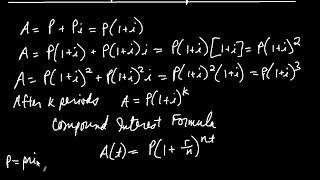 A = P + Pi = P(1+i)
A = P(1+i) + P(1+i)i = P(1+i)[1+i] = P(1+i)²
A = P(1+i)² + P(1+i)²i = P(1+i)²(1+i) = P(1+i)³
After k periods A = P(1+i)^k
Compound Interest Formula
A(t) = P(1 + r/n)^nt
P = pri